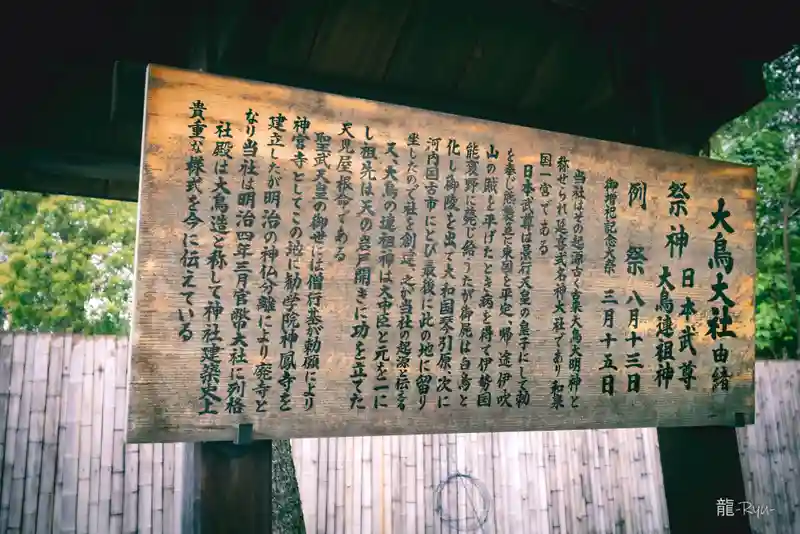 大鳥大社由緒
祭神 日本武尊
大鳥連祖神
例 祭 八月十三日
御増祀記念大祭 三月十五日
当社はその起源古く古来大鳥大明神と
称せられ延喜式名神大社であり和泉
国一宮である
日本武尊は景行天皇の皇子にして勅
を奉じ熊襲並に東国を平定、帰途伊吹
山の賊を平げたとき病を得て伊勢国
能褒野に薨じ給うたが御屍は白鳥と
化し御陵を出て大和国琴引原、次に
河内国古市にとび最後に此の地に留り
坐したので社を創建、之が当社の起源と伝える
又、大鳥の連祖神は大中臣と元を一に
し祖先は天の岩戸開きに功を立てた
天児屋根命である
聖武天皇の御世には僧行基が勅願により
神宮寺としてこの地に勧学院神鳳寺を
建立したが明治の神仏分離により廃寺と
なり当社は明治四年三月官幣大社に列格
社殿は大鳥造と称して神社建築史上
貴重な様式を今に伝えている
龍-Ryu-